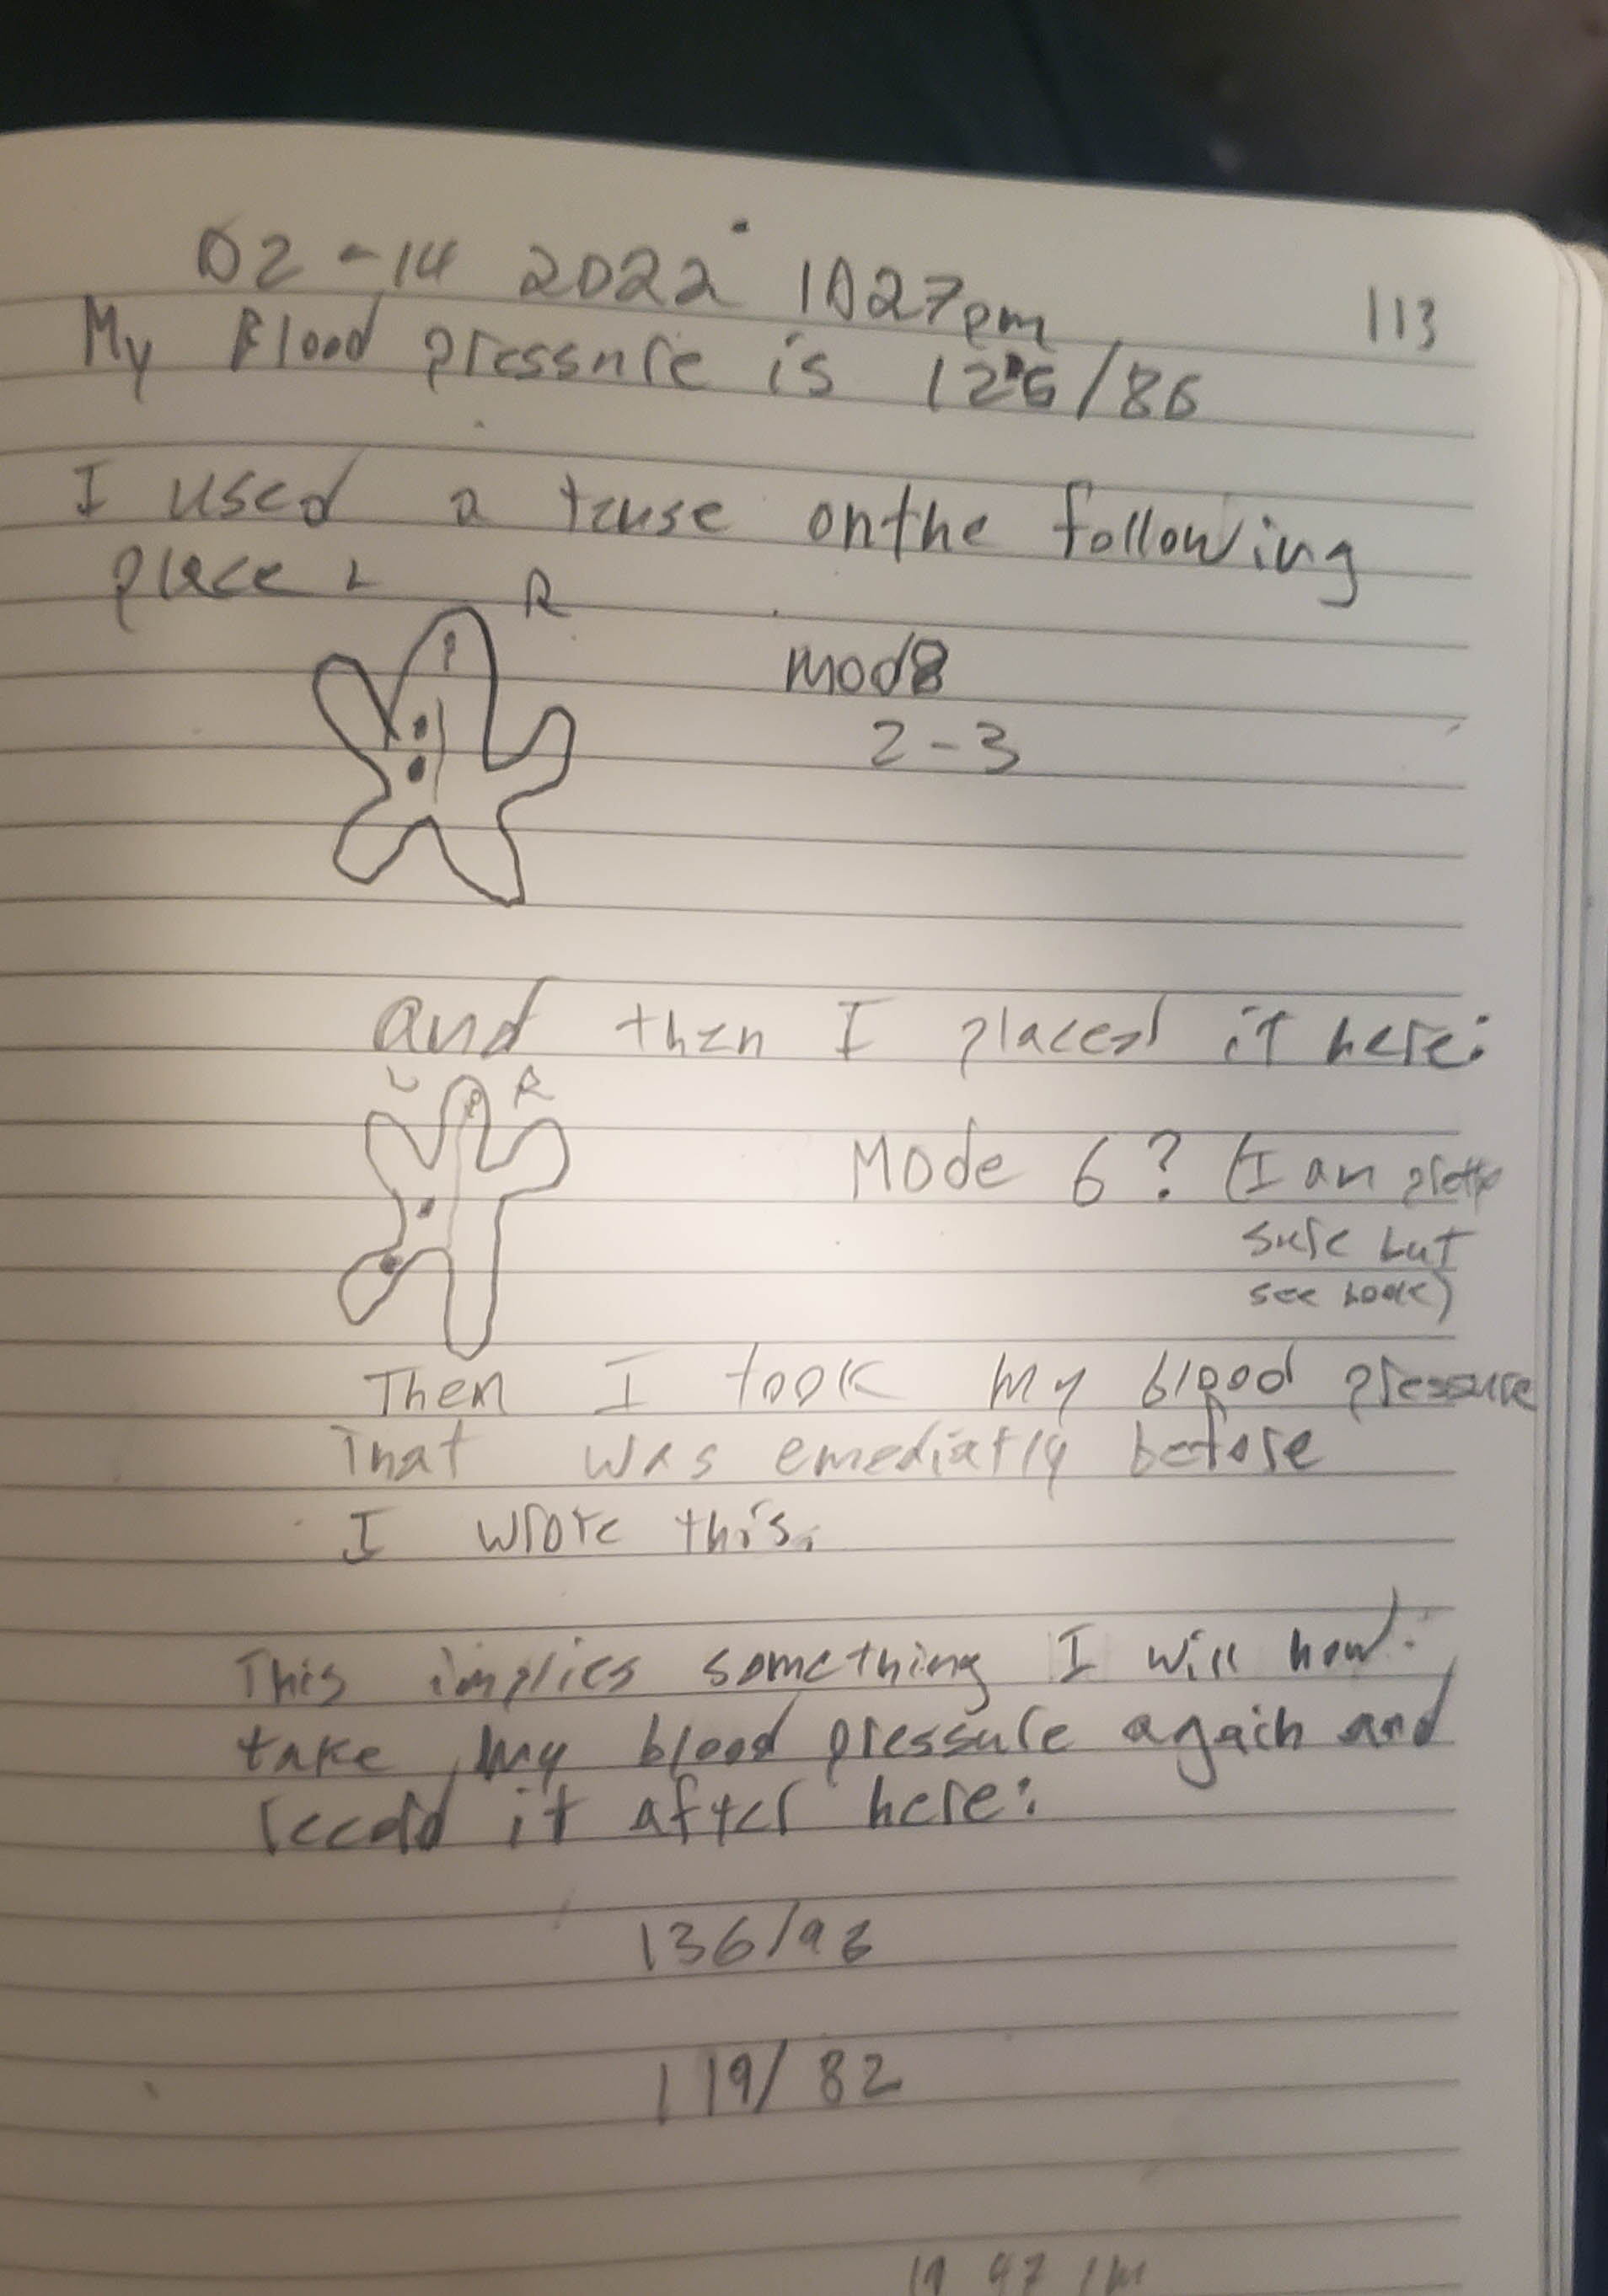 02-14 2022 1027pm
113
My Blood pressure is 126/86
I used a tense on the following
place L R
mode
2-3
and then I placed it here:
L R
Mode 6? (I am pretty
sure but
see book)
Then I took my blood pressure
That was emediatly before
I wrote this.
This implies something I will now:
take my blood pressure again and
record it after here:
136/93
119/82